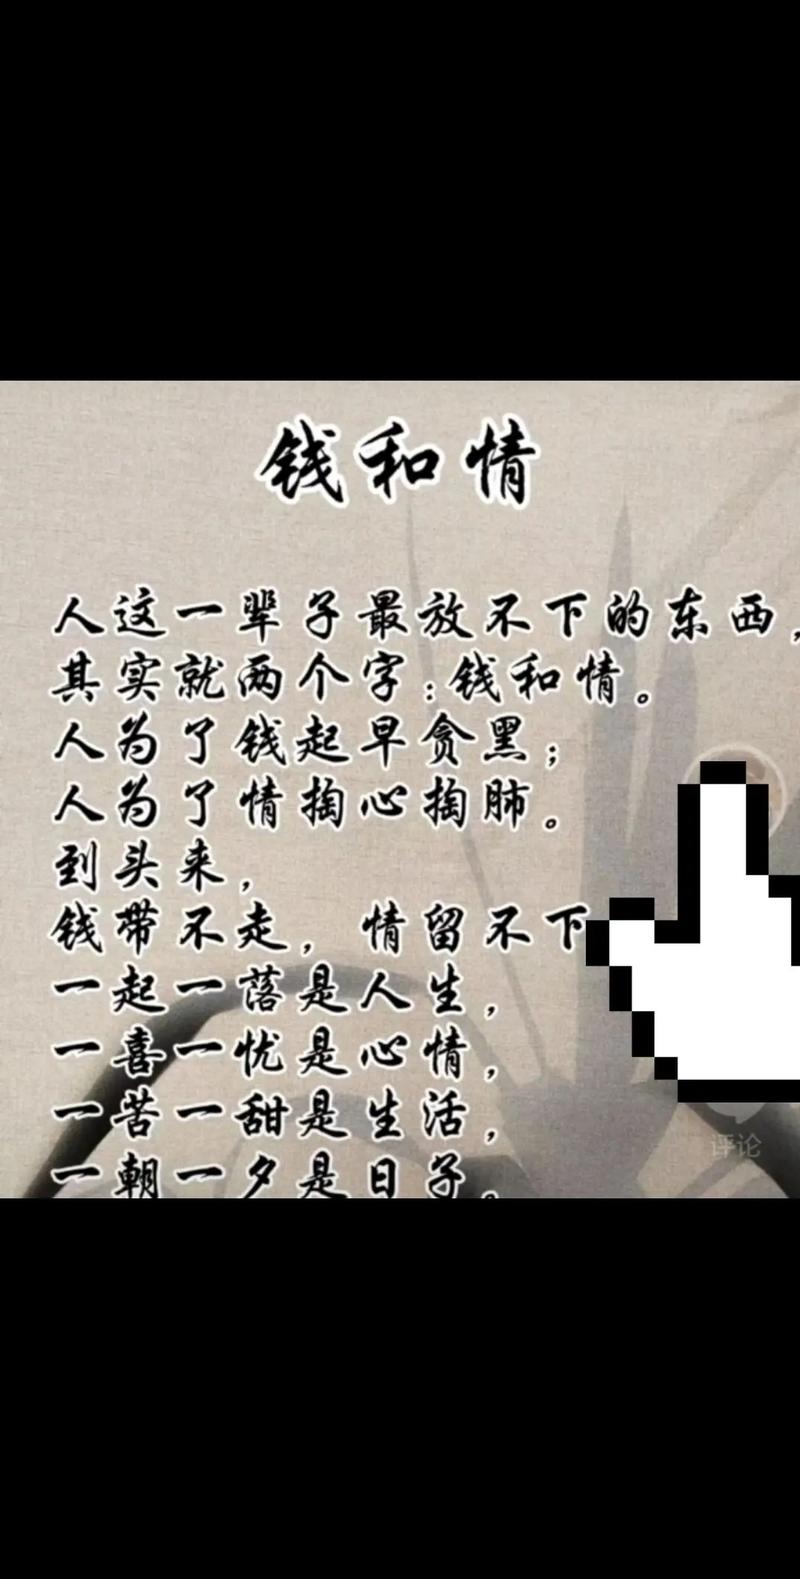 钱和情
人这一辈子最放不下的东西，
其实就两个字：钱和情。
人为了钱起早贪黑；
人为了情掏心掏肺。
到头来，
钱带不走，情留不下
一起一落是人生，
一喜一忧是心情，
一苦一甜是生活，
评论
一朝一夕是日子。